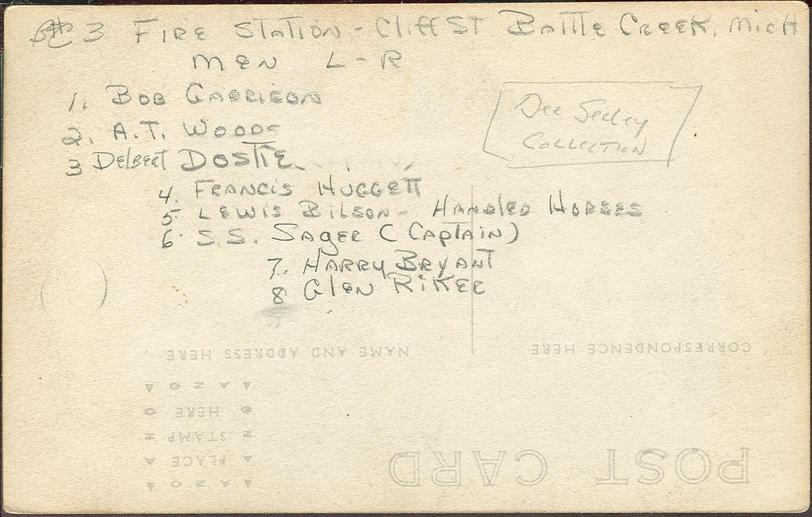 # 3 FIRE STATION - CLIFF ST BATTLE CREEK, MICH
MEN L-R
1. BOB GARRISON
2. A.T. WOODS
3 DELBERT DOSTIE
4. FRANCIS HUGGETT
5 LEWIS BILSON - HANDLED HORSES
6 S.S. SAGER (CAPTAIN)
7. HARRY BRYANT
8 GLEN RIKER
Dee Seeley
COLLECTION
CORRESPONDENCE HERE
NAME AND ADDRESS HERE
POST CARD
AZOA
PLACE
STAMP
HERE
AZOA